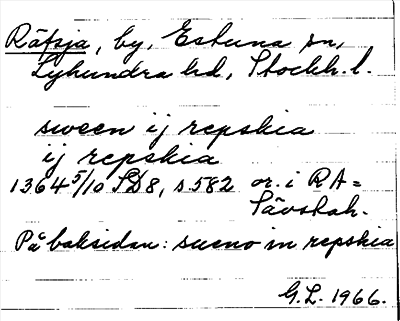 Räfsja, by, Estuna sn,
Lyhundra hd, Stockh. l.
sween ij repskia
ij repskia
1364 5/10 SD8, s 582 or. i RA =
Sävstah.
På baksidan: sueno in repskia
G.L. 1966.